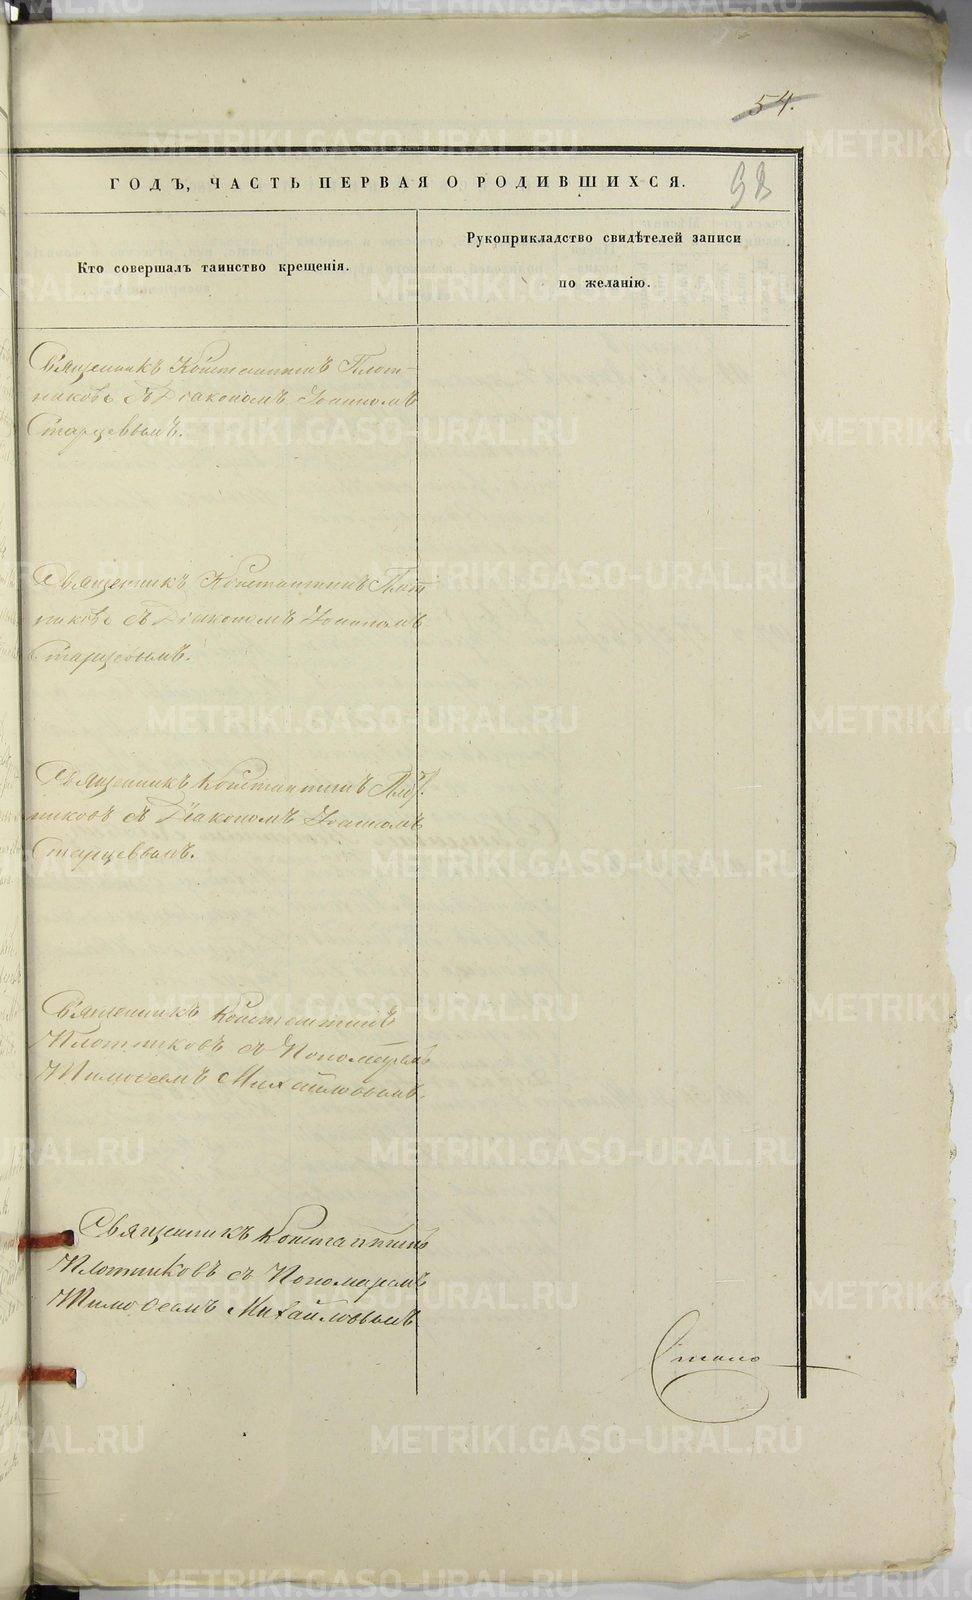 54.
ГОДЪ, ЧАСТЬ ПЕРВАЯ О РОДИВШИХСЯ.
98
Кто совершалъ таинство крещенія.
Рукоприкладство свидѣтелей записи
по желанію.
Священникъ Константинъ Плот-
никовъ съ Діакономъ Іоанномъ
Старцевымъ.
Священникъ Константинъ Плот
никовъ съ Діакономъ Іоанномъ
Старцевымъ.
Священникъ Константинъ Плот.
никовъ съ Діакономъ Іоанномъ
Старцевымъ.
Священникъ Константинъ
Плотниковъ съ Пономаремъ
Тимоѳеемъ Михайловымъ.
Священникъ Константинъ
Плотниковъ съ Пономаремъ
Тимоѳеемъ Михайловымъ
METRIKI.GASO-URAL.RU